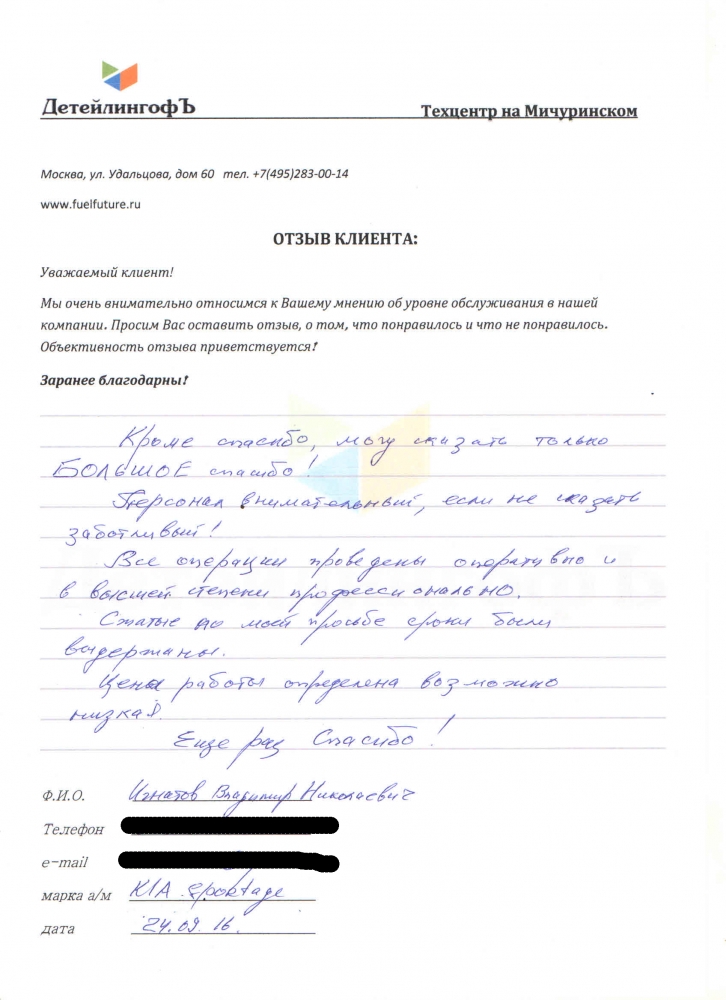 ДетейлингофЪ
Техцентр на Мичуринском
Москва, ул. Удальцова, дом 60 тел. +7(495)283-00-14
www.fuelfuture.ru
ОТЗЫВ КЛИЕНТА:
Уважаемый клиент!
Мы очень внимательно относимся к Вашему мнению об уровне обслуживания в нашей
компании. Просим Вас оставить отзыв, о том, что понравилось и что не понравилось.
Объективность отзыва приветствуется!
Заранее благодарны!
Кроме спасибо, могу сказать только
БОЛЬШОЕ спасибо!
Персонал внимательный, если не сказать
заботливый!
Все операции проведены оперативно и
в высшей степени профессионально.
Сжатые по моей просьбе сроки были
выдержаны.
Цена работы определена возможно
низкая.
Еще раз Спасибо!
Ф.И.О. Игнатов Владимир Николаевич
Телефон
e-mail
марка а/м KIA Sportage
дата 24.09.16.